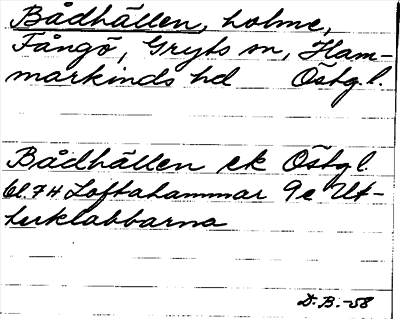 Bådhällen, holme,
Fångö, Gryts sn, Ham-
markinds hd Östg.l.
Bådhällen ek Östgl.
bl. 7H Loftahammar 9e Ut-
terklabbarna
D.B.-58